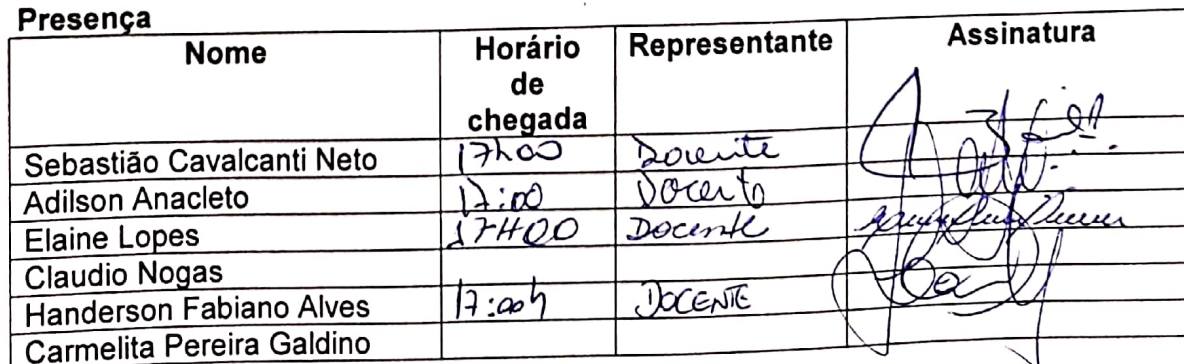 Presença
Nome Horário de chegada Representante Assinatura
Sebastião Cavalcanti Neto 17h00 Docente
Adilson Anacleto 17:00 Docente
Elaine Lopes 17H00 Docente
Claudio Nogas
Handerson Fabiano Alves 17:00h DOCENTE
Carmelita Pereira Galdino